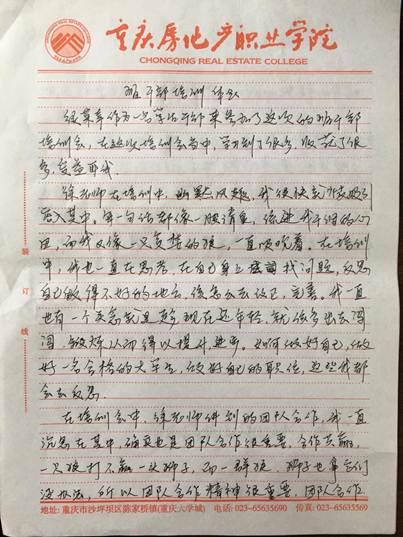 重庆房地产职业学院
CHONGQING REAL ESTATE COLLEGE
班干部培训体会
很荣幸作为一名学生干部来参加了这次的班干部
培训会，在这次培训会当中，学习到了很多，收获了很
多，受益匪浅。
徐老师在培训中，幽默风趣，我很快就
融入其中，每一句话都像一股清泉，
田，而我又像一只 的狼，一直吸吮着。在培训
中，我也一直在思考，在自己身上 找问题，反思
自己做得不好的地方，该怎么去改正，完善。我一直
也有一个 就是 现在还年轻，就该多出去闯
闯，锻炼 从而得以提升，进步。如何做好自己，做
好一名合格的大学生，做好自己的职位，这些我都
会去反思。
在培训会中，徐老师 到的团队合作，我一直
沉思在其中，确实也是团队合作很重要，合作共赢，
一只狼打不赢一头狮子，而一群狼，狮子也拿它们
没办法，所以团队合作精神很重要，团队合作
装
订
线
地址: 重庆市沙坪坝区陈家桥镇(重庆大学城) 电话: 023-65635690 传真: 023-65635569